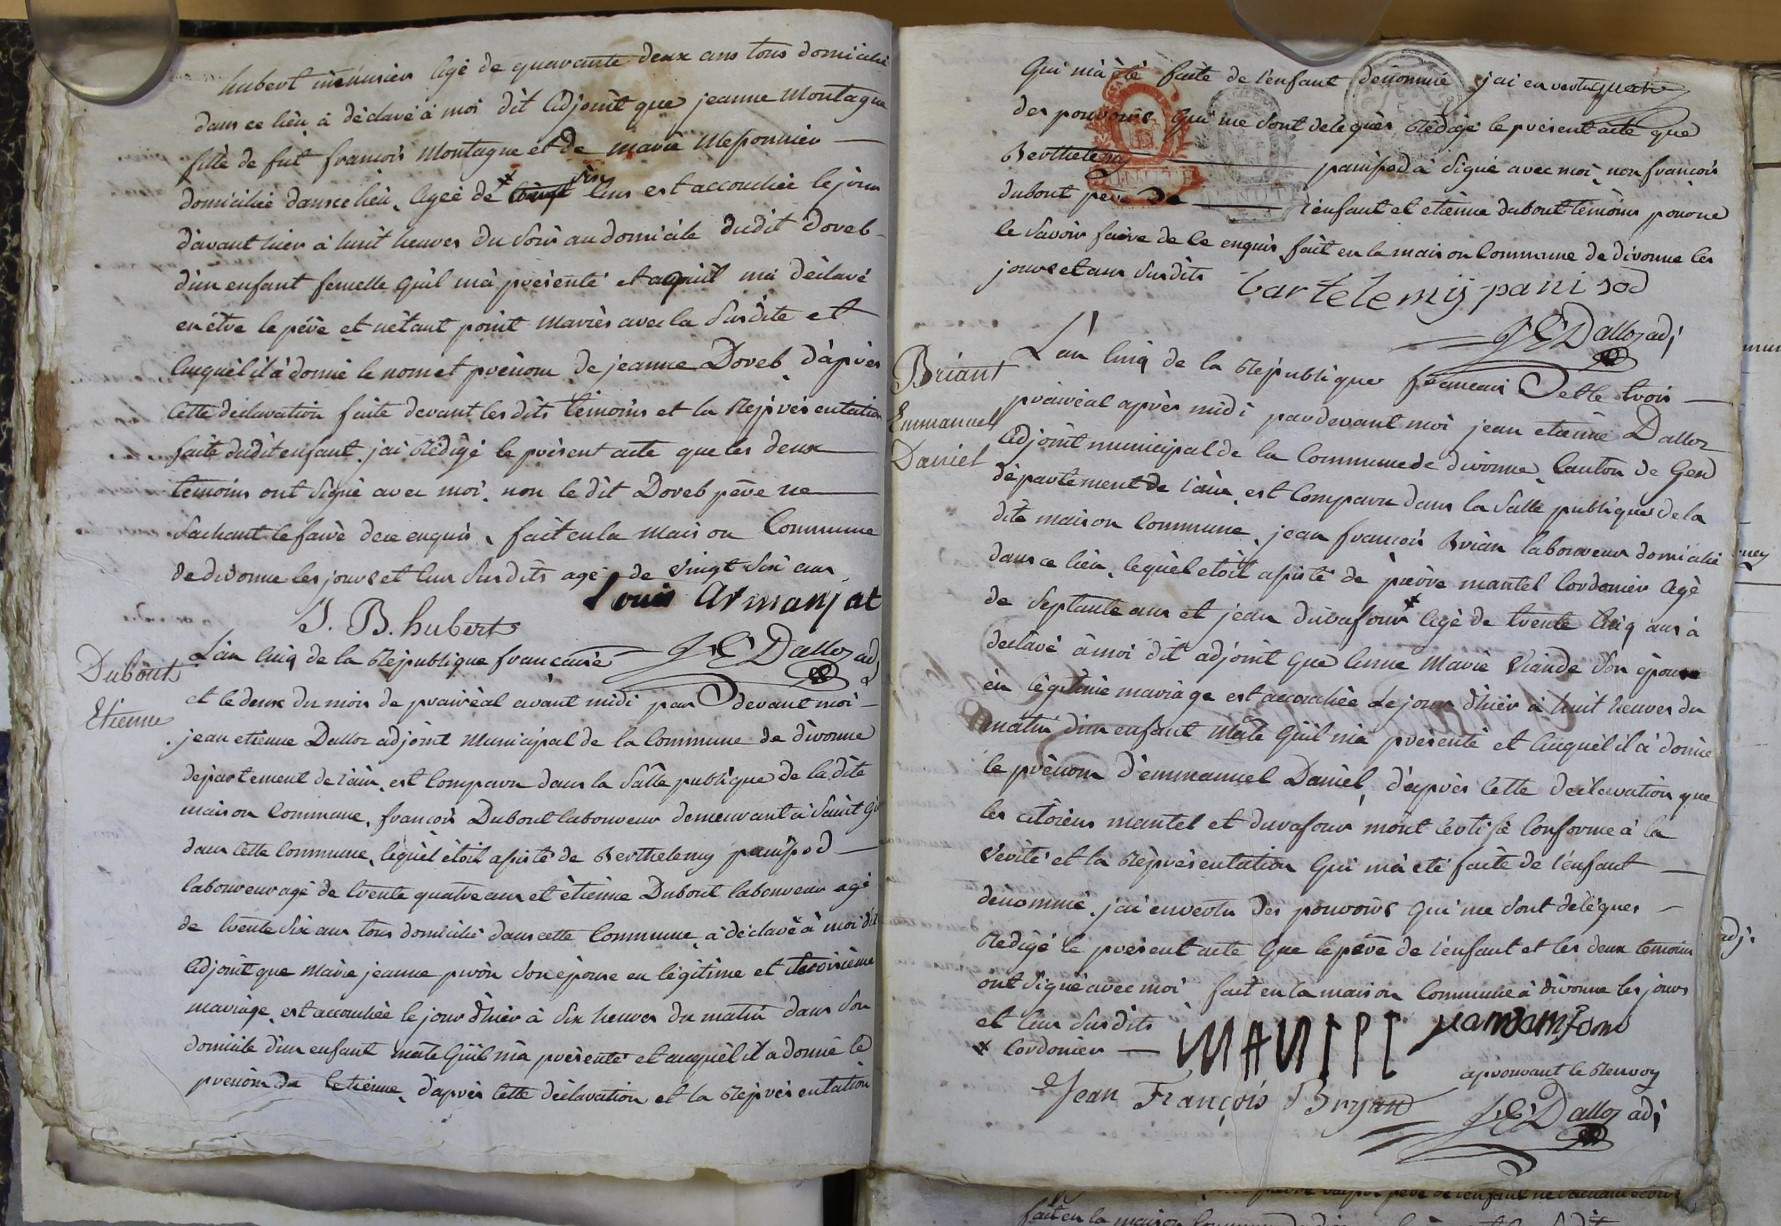 hubert menusier agé de quarante deux ans tous domicilié
dans ce lieu à déclaré à moi dit adjoint que jeanne Montague
fille de fut francois Montague et de marie Messonnier
domiciliée dans ce lieu, agée de vingt six ans est accouchée le jour
d'avant hier à huit heures du soir au domicile dudit Doreb
d'un enfant femelle quil m'à présenté et aquil mà déclaré
en être le père et nétant point mariés avec la susdite et
auquel il à donné le nom et prénom de jeanne Doreb, d'après
cette déclaration faite devant les dits témoins et la représentation
faite dudit enfant j'ai rédigé le présent acte que les deux
témoins ont signé avec moi, non le dit Doreb père ne
sachant le faire de ce enquis, fait en la maison Commune
de divonne les jours et ans susdits agé de vingt six ans
Louis Armanjat
J. B. hubert
L'an cinq de la République francaise J E Dalloz adj
Dubout
Etienne
et le deux du mois de prairéal avant midi par devant moi
jean etienne Dalloz adjoint Municipal de la Commune de divonne
département de l'ain, est comparu dans la Salle publique de la dite
maison Commune, francois Dubout laboureur demeurant à Saint
dans cette Commune, lequel étoit assisté de Berthelemy panisod
laboureur agé de trente quatre ans et étienne Dubout laboureur agé
de trente six ans tous domicilié dans cette Commune, à déclaré à moi dit
adjoint que Marie jeanne son épouse en légitime et troisième
mariage, est accouchée le jour d'hier à six heures du matin dans son
domicile d'un enfant mâle quil m'à présenté et auquel il a donné le
prénom de Etienne, d'après cette déclaration et la représentation
qui m'à été faite de l'enfant dénommé j'ai en vertu
des pouvoirs qui me sont délegués rédigé le présent acte que
Berthelemy panisod à signé avec moi, non francois
dubout père de l'enfant et etienne dubout témoins pour ne
le savoir faire de ce enquis fait en la maison Commune de divonne les
jours et ans susdits
bartelemij panisod
J E Dalloz adj
Briant
Emmanuel
Daniel
L'an cinq de la République francais et le trois
prairéal après midi pardevant moi jean etienne Dalloz
adjoint municipal de la Commune de divonne, Canton de Gex
département de l'ain, est comparu dans la Salle publique de la
dite maison Commune, jean francois Brian laboureur domicilié
dans ce lieu, lequel étoit assisté de pierre mantel Cordonier agé
de septante ans et jean duvafour agé de trente cinq ans à
déclaré à moi dit adjoint que anne Marie Viande son épouse
en légitime mariage est accouchée le jour d'hier à huit heures du
matin d'un enfant Mâle quil m'à présenté et auquel il à donné
le prénom d'emmanuel Daniel, d'après cette déclaration que
les citoiens mantel et duvafour mont certifié conforme à la
vérité et la représentation qui m'à été faite de l'enfant
dénommé, j'ai en vertu des pouvoirs qui me sont délégues
rédigé le présent acte que le père de l'enfant et les deux temoins
ont signé avec moi fait en la maison Commune à divonne les jours
et ans susdits
Cordonier
approuvant le Renvoy
Jean François Bryand
J E Dalloz adj
fait en la maison